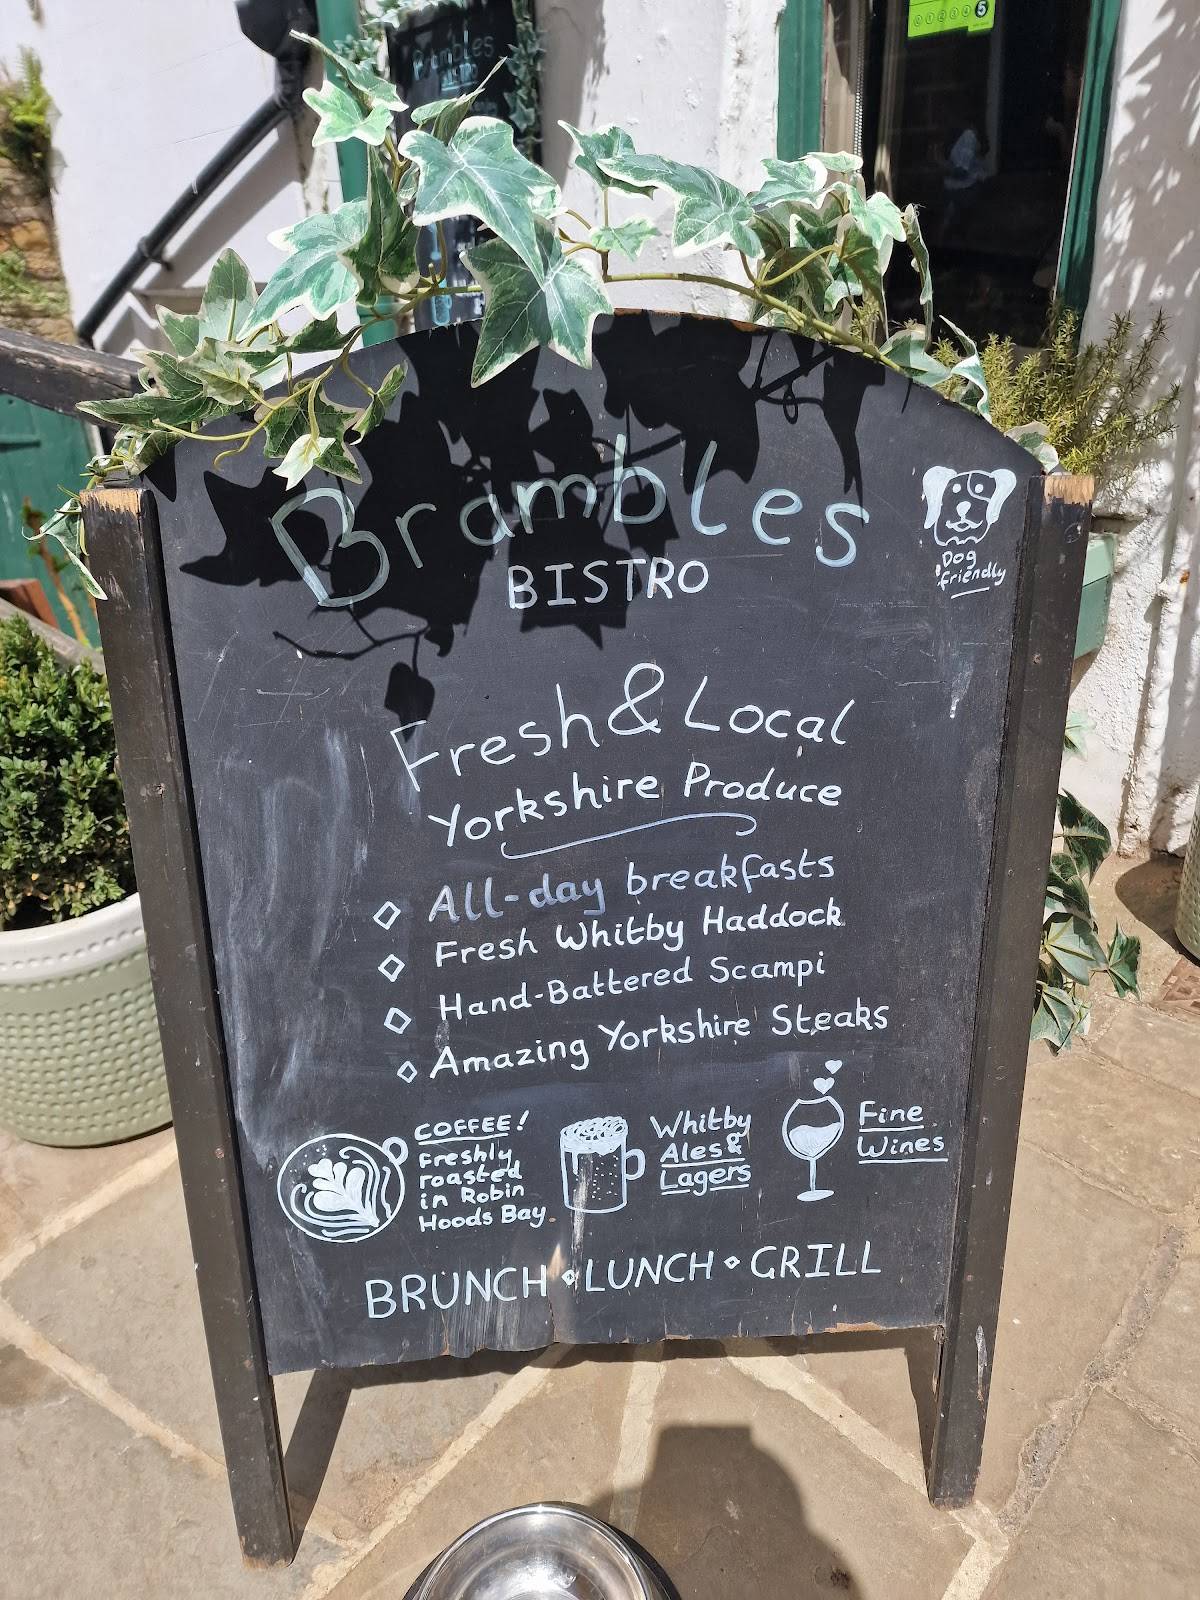 Brambles
BISTRO
0 1 2 3 4 5
Brambles
BISTRO
Dog
friendly
Fresh & Local
Yorkshire Produce
◇ All-day breakfasts
◇ Fresh Whitby Haddock
◇ Hand-Battered Scampi
◇ Amazing Yorkshire Steaks
COFFEE!
Freshly
roasted
in Robin
Hoods Bay
Whitby
Ales &
Lagers
Fine
Wines
BRUNCH ⋄ LUNCH ⋄ GRILL